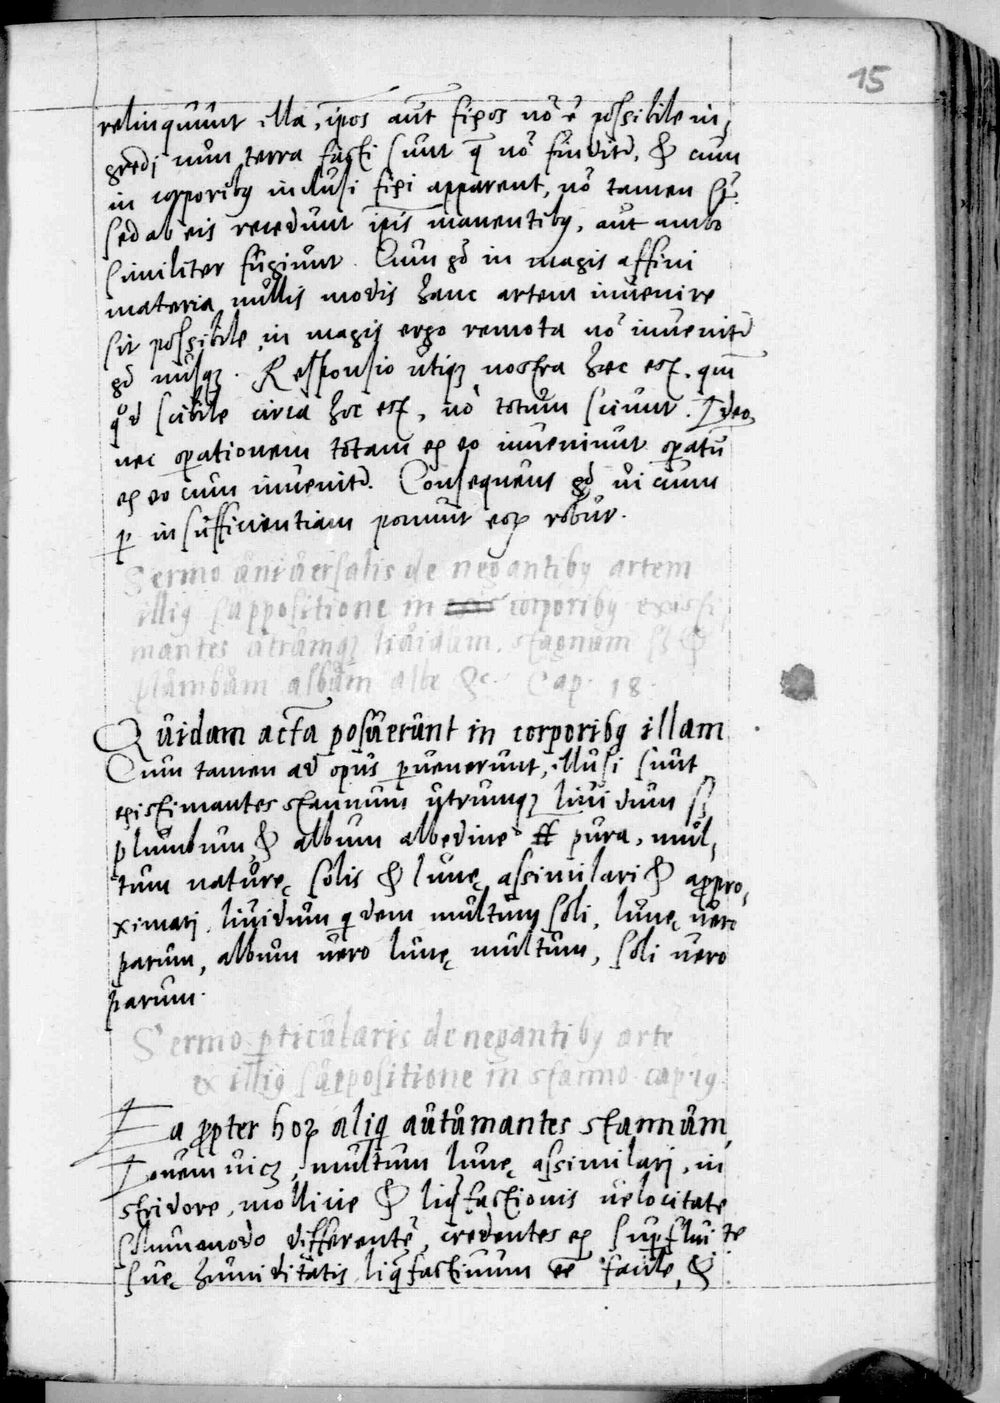 15
relinquunt illa, ip̄os aūt fixos nō ē possibile in,
gredi nūm terra facti sunt q̄ nō fūditur, & cum
in corporibꝰ inclusi fixi apparent, nō tamen sūt.
sed ab eis recedunt ip̄is manentibꝰ, aut ambo
similiter fugiunt. Cum gͦ in magis affini
materia nullis modis hanc artem invenire
sit possibile, in magis ergo remota nō invenitur
gͦ nusqꝫ. Responsio utiqꝫ nostra hæc est. qm̄
qd scibile circa hoc est, nō totum sciunt. Ideo
nec oꝑationem totam ex eo inveniunt oꝑatū
ex eo cum invenitur. Consequens gͦ ui cum
ꝑ insufficientiam ponunt eoꝝ robur.
Sermo universalis de negantibꝰ artem
illiꝰ suppositione in corporibꝰ existi,
mantes utrumqꝫ lividum. stagnum sꝫ &
plumbum album albe &c. Cap. 18.
Quidam actā posuerunt in corporibꝰ illam
Cum tamen ad opus ꝑvenerunt, illusi sunt
existimantes stannum utrumqꝫ lividum sꝫ
plumbum & album albedine pura, mul,
tum naturę solis & lunę assimilari & aꝓpro,
ximari, lividum qͥdem multum soli, lunę uero
parum, album uero lunę multum, soli uero
parum.
Sermo ꝑticularis de negantibꝰ artē
ex illiꝰ suppositione in stanno. cap. 19.
Ea ꝓpter hoꝝ aliqͥ autumantes stannum
Iovem vicꝫ, multum lunę assimilari, in
stridore, mollicie & liqͤfactionis velocitate
solummodo differentē, credentes ex suꝑfluite
suę humiditatis liqͤfactivum eē facile, &